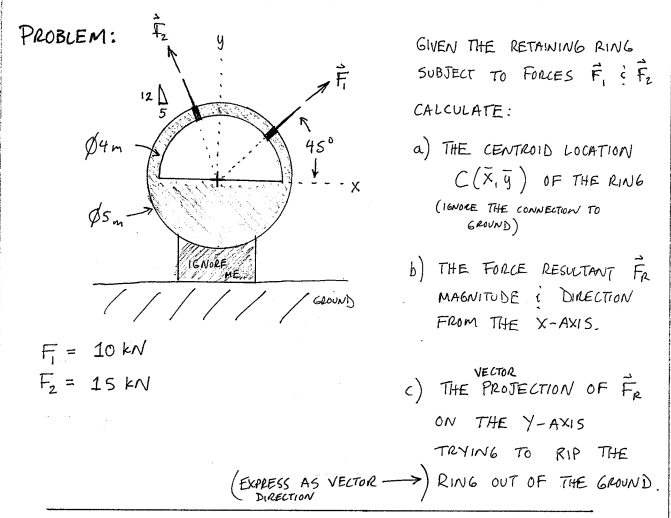 PROBLEM:
F₂
y
F₁
12
5
45°
x
Ø4m
Ø5m
IGNORE
ME
GROUND
F₁ = 10 kN
F₂ = 15 kN
GIVEN THE RETAINING RING
SUBJECT TO FORCES F₁ & F₂
CALCULATE:
a) THE CENTROID LOCATION
C(x̄, ȳ) OF THE RING
(IGNORE THE CONNECTION TO
GROUND)
b) THE FORCE RESULTANT F_R
MAGNITUDE & DIRECTION
FROM THE X-AXIS.
VECTOR
c) THE PROJECTION OF F_R
ON THE Y-AXIS
TRYING TO RIP THE
RING OUT OF THE GROUND.
(EXPRESS AS VECTOR →)
DIRECTION